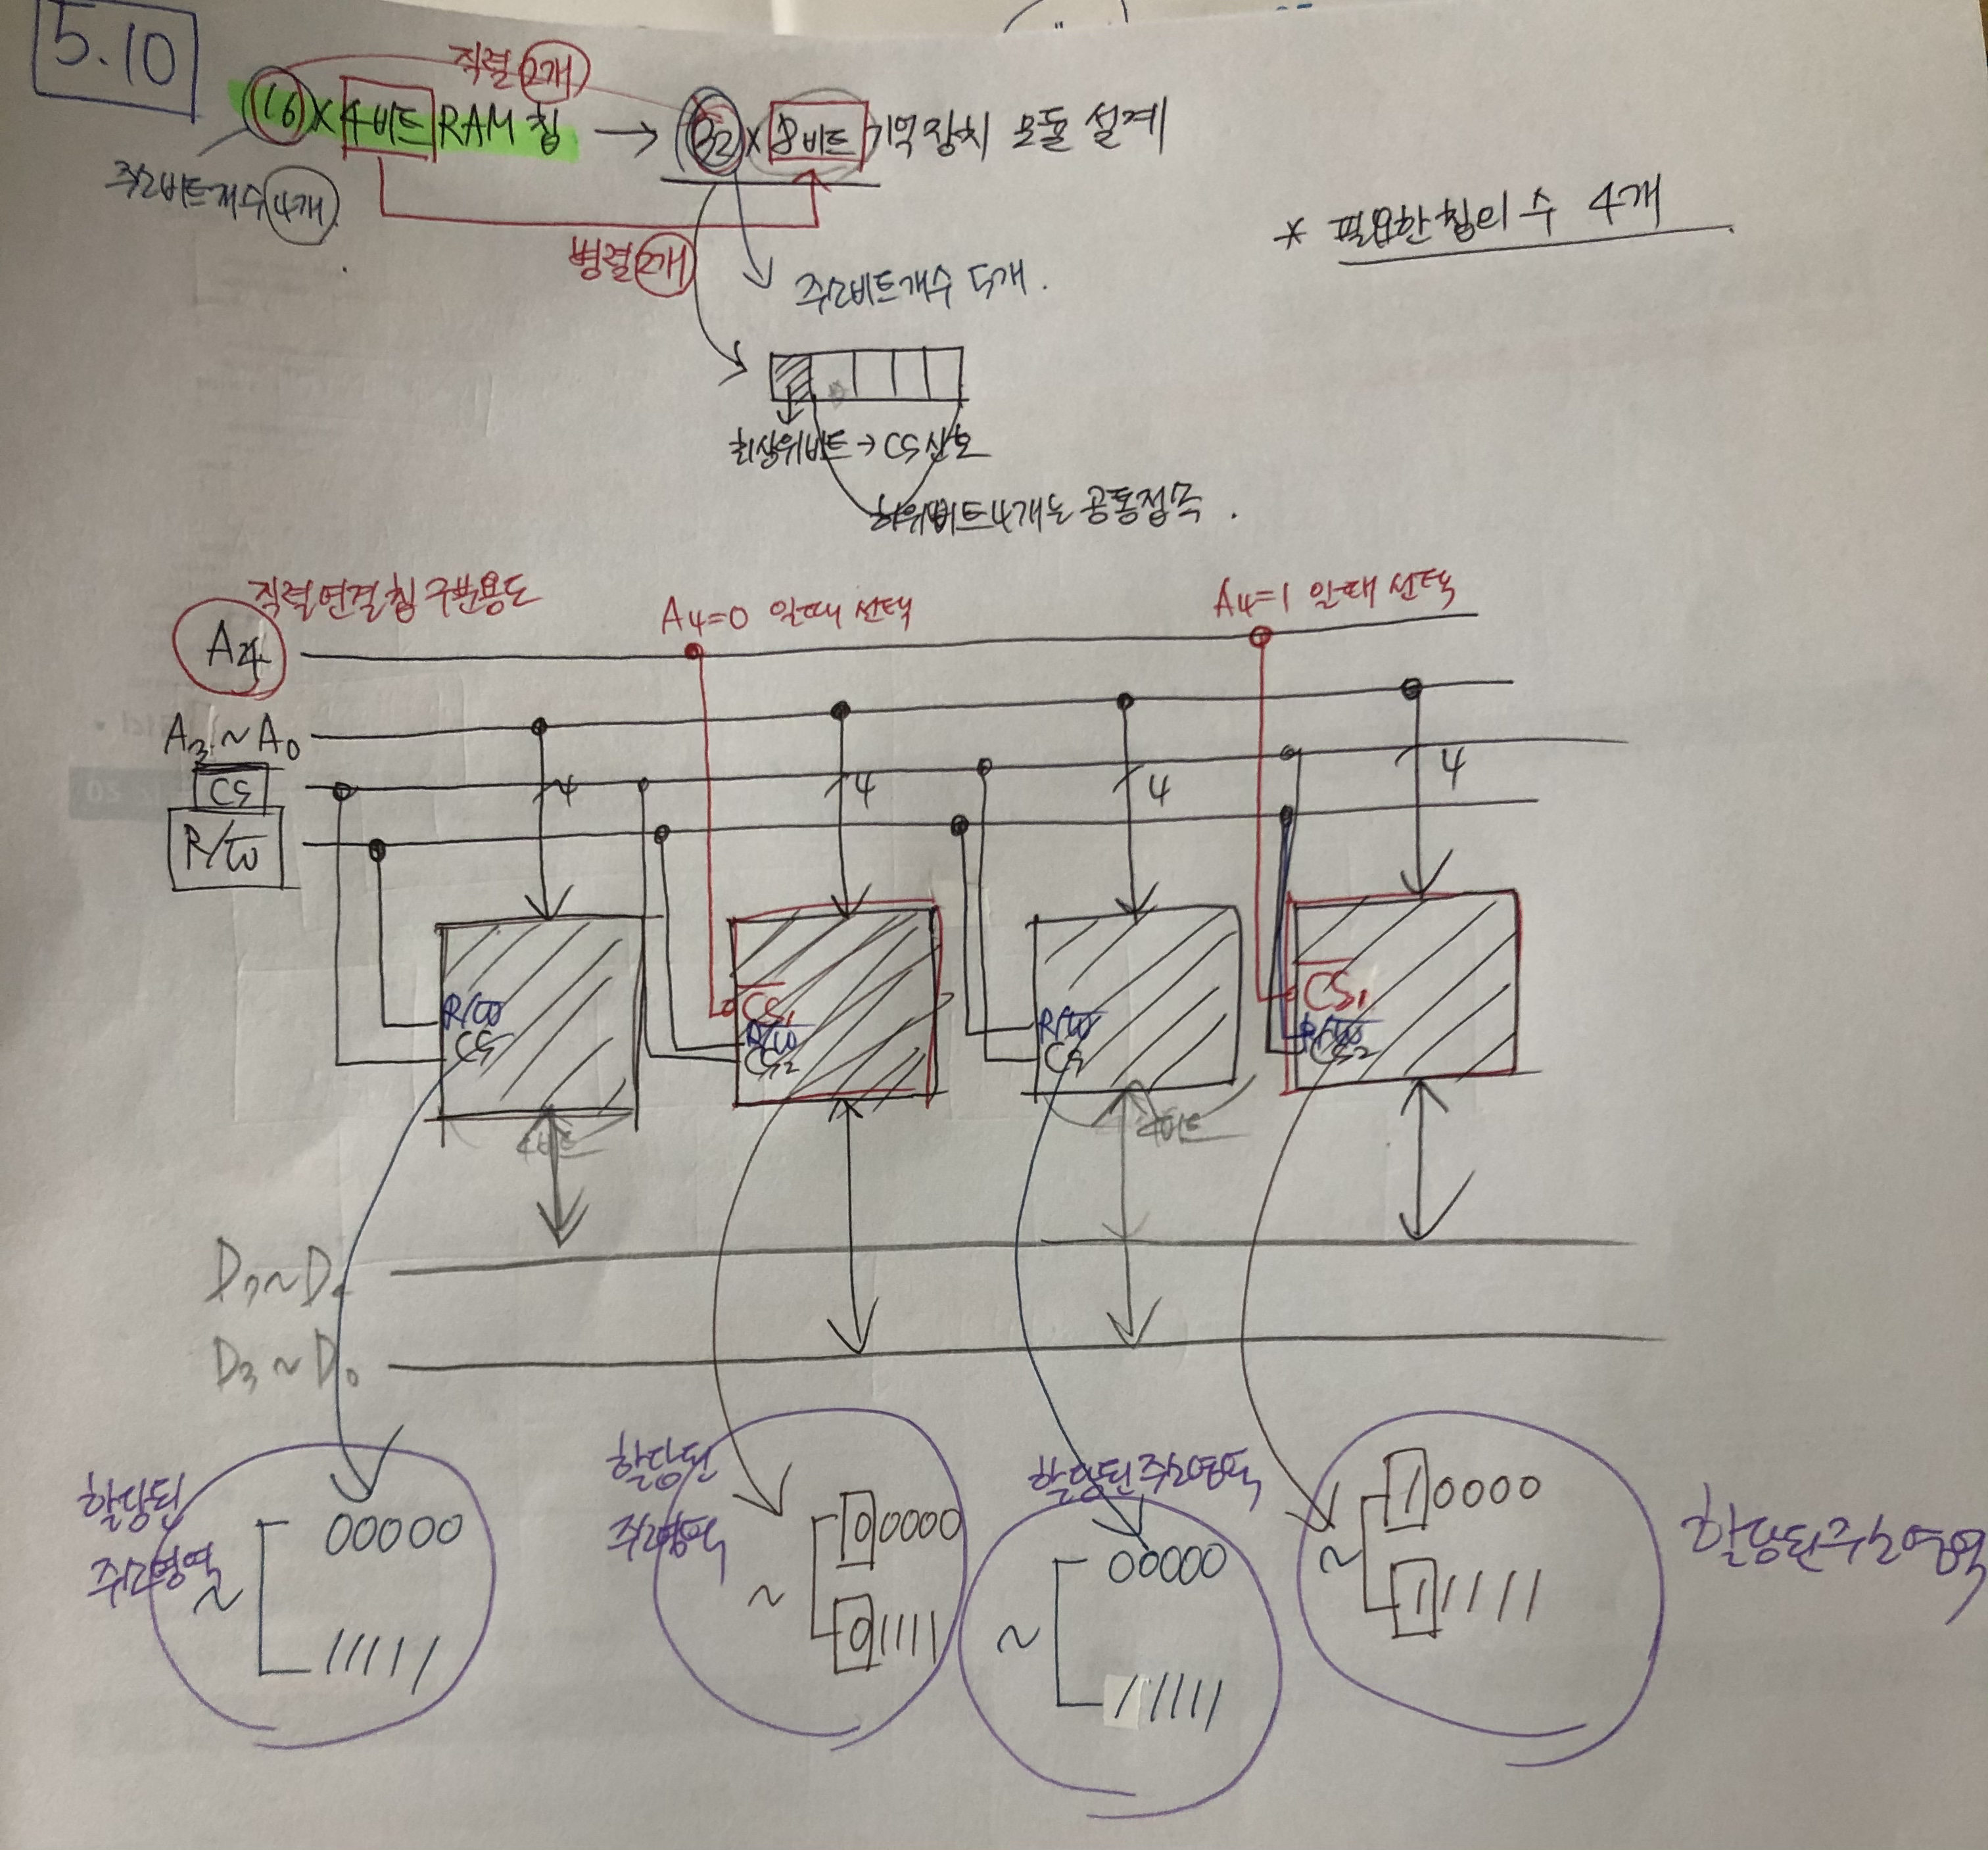 5.10
직렬 2개
16 x 4비트 RAM 칩 → 32 x 8비트 기억장치 모듈 설계
주소비트개수 4개
* 필요한 칩의 수 4개
병렬 2개
주소비트개수 5개.
최상위비트 → CS 신호
하위비트 4개는 공통접속.
직렬연결칩 구분용도
A4=0 일때 선택
A4=1 일때 선택
A4
A3 ~ A0
4 4 4 4
CS
R/W̅
R/W̅
CS
C̅S̅1
R/W̅
CS2
R/W̅
CS
C̅S̅1
R/W̅
CS2
4비트
4비트
D7~D4
D3 ~ D0
할당된
주소영역
~
00000
11111
할당된
주소영역
~
00000
01111
할당된 주소영역
~
00000
11111
~
10000
11111
할당된 주소영역